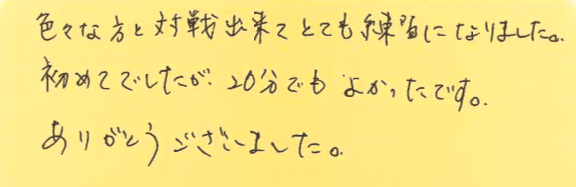 色々な方と対戦出来てとても練習になりました。
初めてでしたが、20分でもよかったです。
ありがとうございました。